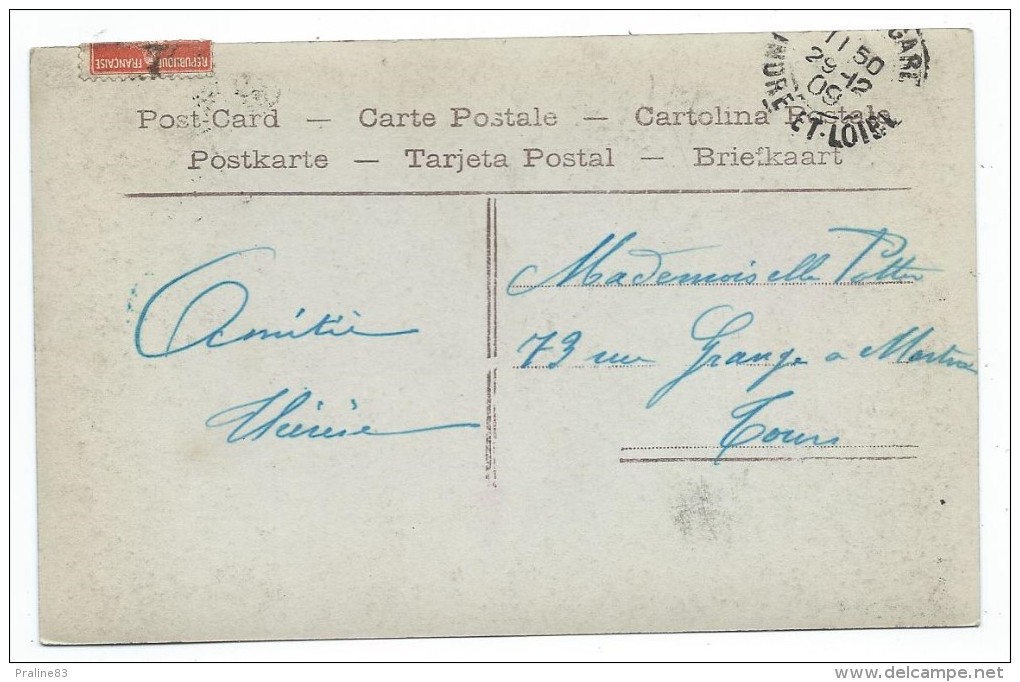 REPUBLIQUE
FRANÇAISE
GARE
11 50
29-12
09
INDRE-ET-LOIRE
Post-Card — Carte Postale — Cartolina Postale
Postkarte — Tarjeta Postal — Briefkaart
Amitié
Thérèse
Mademoiselle
73 rue Grange a Martin
Tours
Praline83
delcampe.net